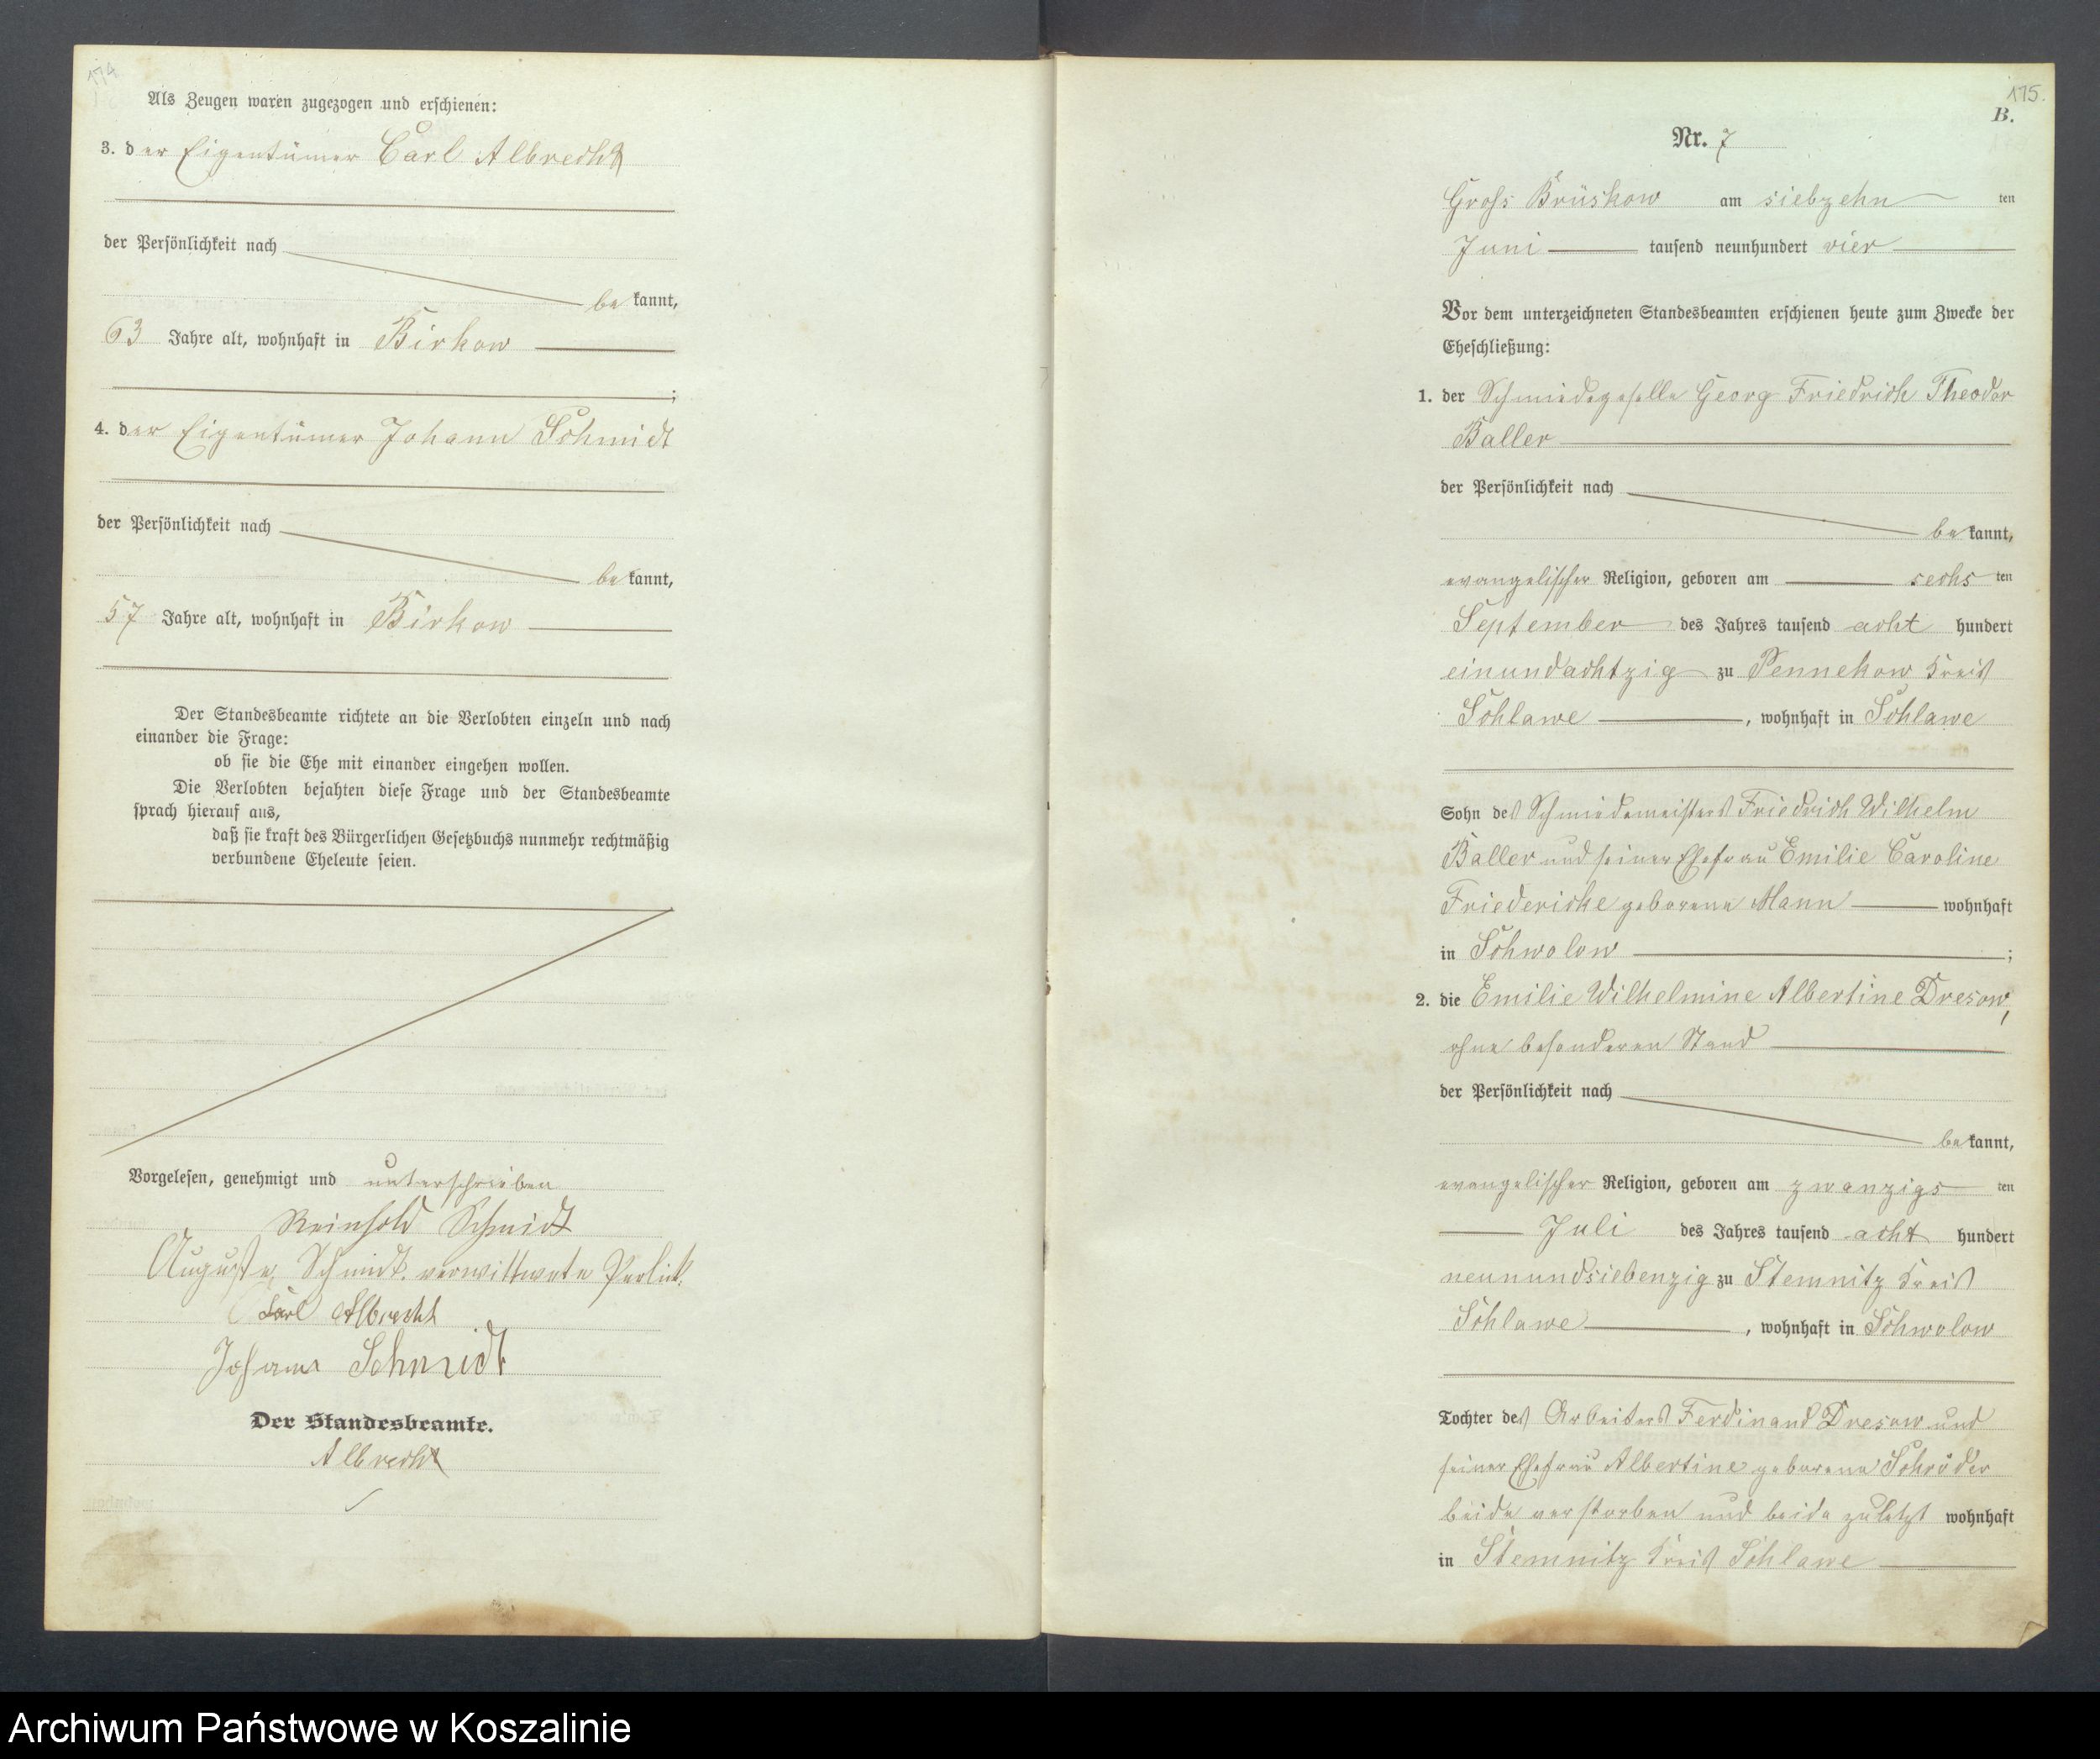 174
Als Zeugen waren zugezogen und erschienen:
3. der Eigentümer Carl Albrecht
der Persönlichkeit nach
bekannt,
63 Jahre alt, wohnhaft in Birkow
;
4. der Eigentümer Johann Schmidt
der Persönlichkeit nach
bekannt,
57 Jahre alt, wohnhaft in Birkow
Der Standesbeamte richtete an die Verlobten einzeln und nach
einander die Frage:
ob sie die Ehe mit einander eingehen wollen.
Die Verlobten bejahten diese Frage und der Standesbeamte
sprach hierauf aus,
daß sie kraft des Bürgerlichen Gesetzbuchs nunmehr rechtmäßig
verbundene Eheleute seien.
Vorgelesen, genehmigt und unterschrieben
Reinhold Schmidt
Auguste Schmidt. verwittwete Perlick.
Carl Albrecht
Johann Schmidt
Der Standesbeamte.
Albrecht
175.
B.
Nr. 7
Gross Brüskow am siebzehn ten
Juni tausend neunhundert vier
Vor dem unterzeichneten Standesbeamten erschienen heute zum Zwecke der
Eheschließung:
1. der Schmiedegeselle Georg Friedrich Theodor
Baller
der Persönlichkeit nach
bekannt,
evangelischer Religion, geboren am sechs ten
September des Jahres tausend acht hundert
einundachtzig zu Pennekow Kreis
Schlawe, wohnhaft in Schlawe
Sohn des Schmiedemeisters Friedrich Wilhelm
Baller und seiner Ehefrau Emilie Caroline
Friedericke geborene Mann wohnhaft
in Schwolow ;
2. die Emilie Wilhelmine Albertine Dresow,
ohne besonderen Stand
der Persönlichkeit nach
bekannt,
evangelischer Religion, geboren am zwanzigs ten
Juli des Jahres tausend acht hundert
neunundsiebenzig zu Stemnitz Kreis
Schlawe, wohnhaft in Schwolow
Tochter des Arbeiters Ferdinand Dresow und
seiner Ehefrau Albertine geborene Schröder
beide verstorben und beide zuletzt wohnhaft
in Stemnitz Kreis Schlawe
Archiwum Państwowe w Koszalinie